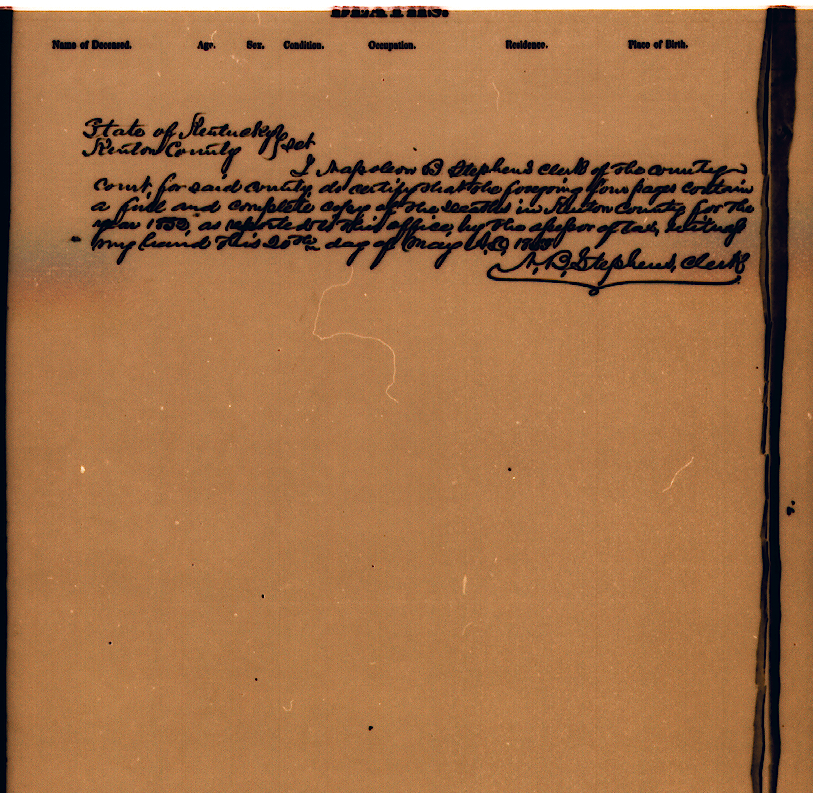 DEATHS.
Name of Deceased. Age. Sex. Condition. Occupation. Residence. Place of Birth.
State of Kentucky
Kenton County } Sct
I Napoleon B Stephens clerk of the county
court for said county, do certify that the foregoing four pages contain
a full and complete copy of the deaths in Kenton County for the
year as reported to this office, by the assessor of tax, witness
my hand this 20th day of May A.D.
N. B. Stephens, Clerk